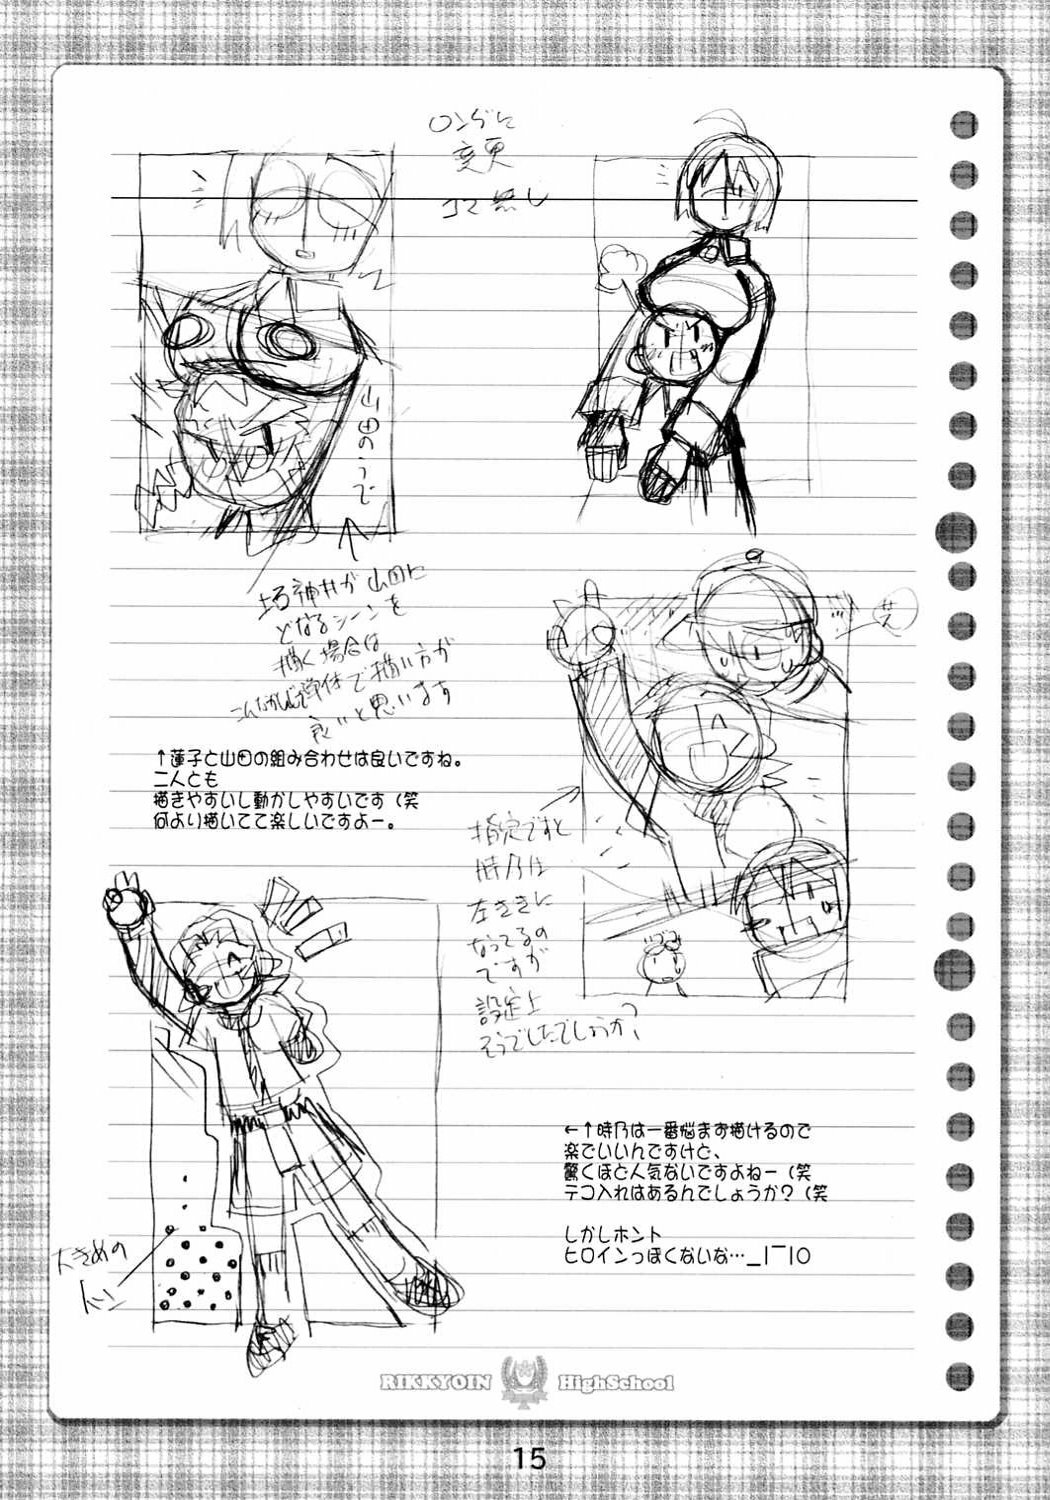 ロングに
変更
コマ無し
山田のうで
坂神井が山田に
どなるシーンを
描く場合は
こんなかんじで字体で描い方が
良いと思います
↑蓮子と山田の組み合わせは良いですね。
二人とも
描きやすいし動かしやすいです（笑
何より描いてて楽しいですよー。
指定ですと
時乃は
左ききに
なってるの
ですが
設定上
そうでしたでしょうか？
大きめの
トーン
←↑時乃は一番悩まず描けるので
楽でいいんですけど、
驚くほど人気ないですよねー（笑
テコ入れはあるんでしょうか？（笑
しかしホント
ヒロインっぽくないな…＿|￣|○
RIKKYOIN HighSchool
15